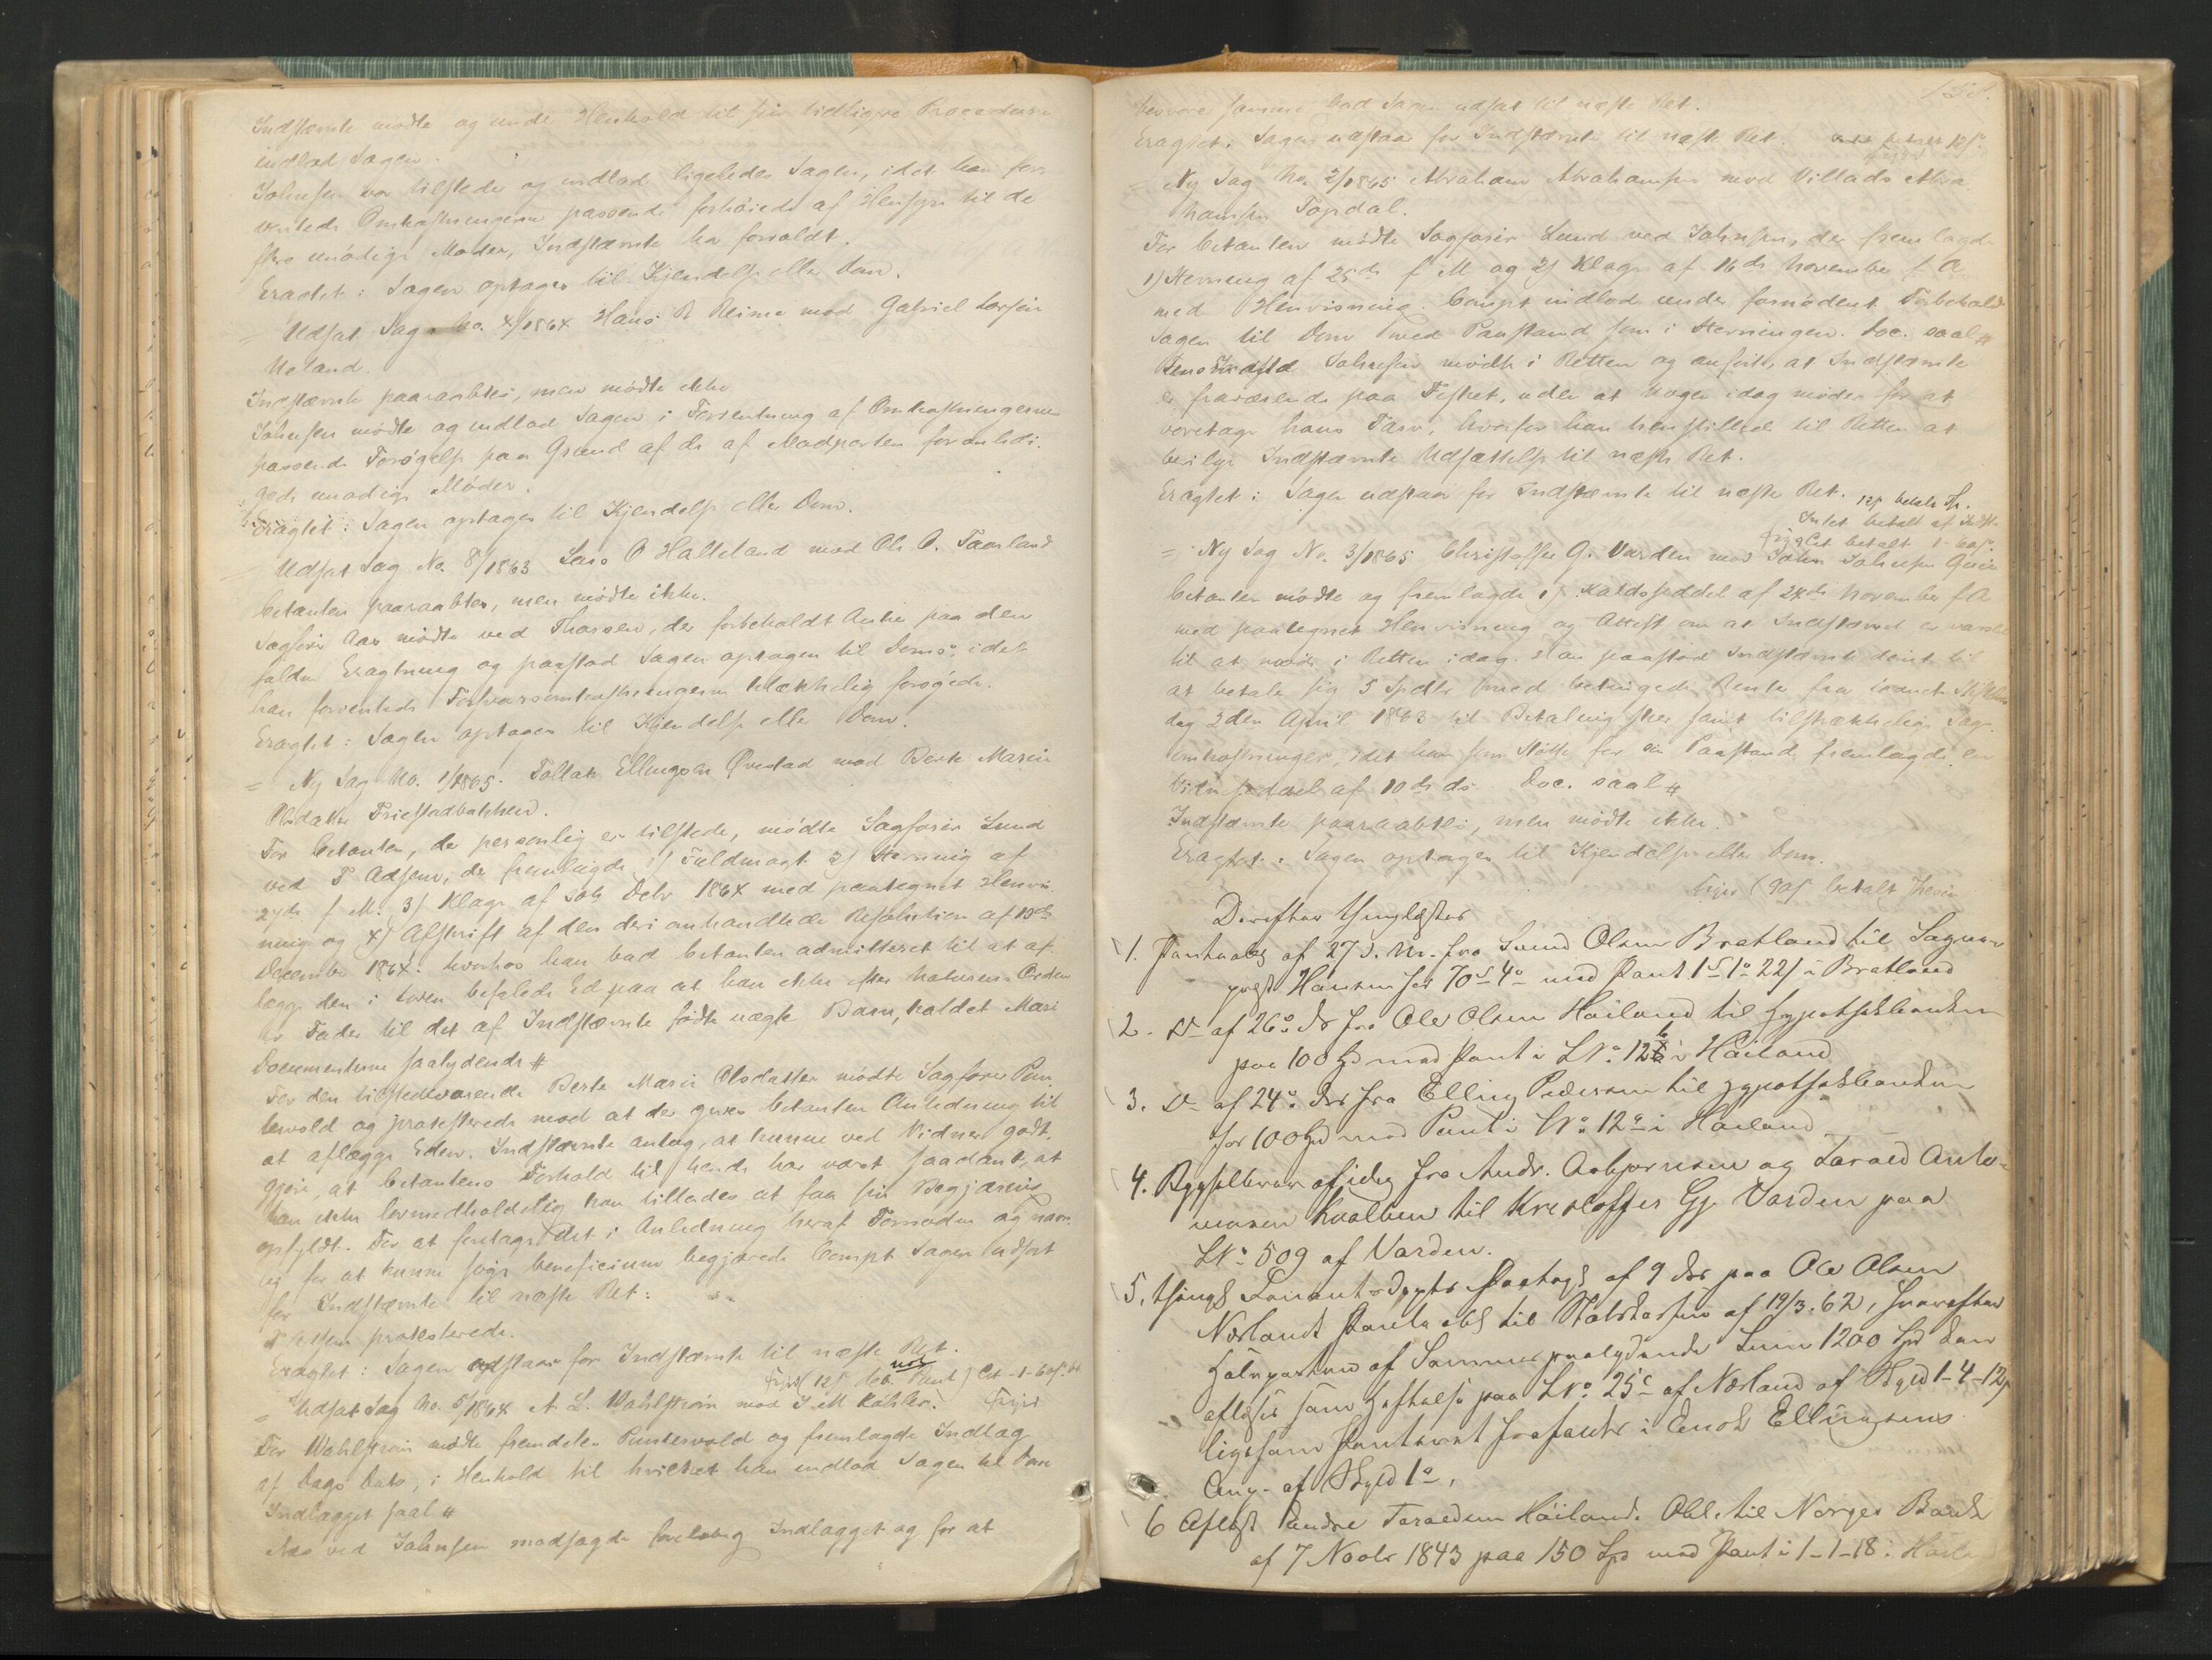 Indstævnte mødte og under Henhold til sin tidligere Procedure
indlod Sagen.
Johnsen var tilstede og indlod ligeledes Sagen, idet han for-
ventede Omkostningerne passende forhøiede af Hensyn til de
flere unødige Møder, Indstævnte har forvoldt.
Eragtet: Sagen optages til Kjendelse eller Dom.
= Udsat Sag No. 4/1864 Hans R Reime mod Gabriel Larsen
Ueland.
Indstævnte paaraabtes, men mødte ikke
Johnsen mødte og indlod Sagen i Forventning af Omkostningernes
passende Forøgelse paa Grund af de af Modparten foranledi-
gede unødige Møder.
Eragtet: Sagen optages til Kjendelse eller Dom.
Udsat Sag No. 8/1863 Lars O Halleland mod Ole O. Taarland
Citanten paaraabtes, men mødte ikke.
Sagfører Aas mødte ved Thorsen, der forbeholdt Anke paa den
faldne Eragtning og paastod Sagen optagen til Doms, idet
han forventede Forsvarsomkostningerne tilstrækkelig forøgede.
Eragtet: Sagen optages til Kjendelse eller Dom.
= Ny Sag No. 1/1865. Tollak Ellingsen Qvestad mod Berte Marie
Olsdatter Friestadbakken.
For Citanten, der personlig er tilstede, mødte Sagfører Lund
ved T Adsen, der fremlagde 1) Fuldmagt 2) Stevning af
27de f. M. 3) Klage af Debr 1864 med paategnet Henvis-
ning og 4) Afskrift af den deri omhandlede Resolution af 13de
December 1864: hvorhos han bad Citanten admitteret til at af-
lægge den i Loven befalede Ed paa at han ikke efter Naturens Orden
er Fader til det af Indstævnte fødte uægte Barn, kaldet Mari
Documenterne saalydende #
For den tilstedeværende Berte Marie Olsdatter mødte Sagfører Pun-
tervold og protesterede mod at der gives Citanten Anledning til
at aflægge Eden. Indstævnte antog, at kunne ved Vidner godt-
gjøre, at Citantens Forhold til hende har været saadant, at
han ikke lovmedholdelig kan tillades at faa sin Begjæring
opfyldt. For at foretage det i Anledning heraf Fornødne og navn-
lig for at kunne søge beneficium begjærede Compt Sagen udsat
for Indstævnte til næste Ret:
T Adsen protesterede.
Eragtet: Sagen udstaar for Indstævnte til næste Ret.
= Udsat Sag No. 5/1864 A. L. Wahlstrøm mod J M Køhler.
For Wahlstrøm mødte fremdeles Puntervold og fremlagde Indlæg
af Dags Dato, i Henhold til hvilket han indlod Sagen til Dom
Indlægget saal #
Aas ved Johnsen modsagde foreløbig Indlægget og for at
besvare samme bad Sagen udsat til næste Ret.
Eragtet: Sagen udstaar for Indstævnte til næste Ret.
= Ny Sag No. 2/1865 Abraham Abrahamsen mod Villads Abra-
hamsen Topdal.
For Citanten mødte Sagfører Lund ved Johnsen, der fremlagde
1) Stevning af 25de f M og 2) Klage af 16de November f A
med Henvisning. Compt indlod under fornødent Forbehold
Sagen til Dom med Paastand som i Stevningen. Doc. saal #
Johnsen mødte i Retten og anførte, at Indstævnte
er fraværende paa Fisket, uden at Nogen idag møder for at
varetage hans Tarv, hvorfor han henstillede til Retten at
bevilge Indstævnte Udsættelse til næste Ret.
Eragtet: Sagen udstaar for Indstævnte til næste Ret.
= Ny Sag No. 3/1865 Christoffer G. Varden mod John Johnsen
Citanten mødte og fremlagde 1) Kaldsseddel af 24de November f A
med paategnet Henvisning og Attest om at Indstævnte er varslet
til at møde i Retten idag. Han paastod Indstævnte dømt til
at betale sig 5 Spdlr med betingede Rente fra
dag 2den April 1843 til Betaling skeer samt tilstrækkelige Sags-
omkostninger, idet han som Støtte for sin Paastand fremlagde en
af 10de ds Doc. saal #
Indstævnte paaraabtes, men mødte ikke.
Eragtet: Sagen optages til Kjendelse eller Dom.
Derefter thinglæstes
1. Pantoblg af 27 d. M. fra Svend Olsen Bratland til Sogne-
præst Hansen for 70 S 4 o med Pant 1 S 1 o 22 f i Bratland
2. Do af 26 ds fra Ole Olsen Høiland til Hypothekbanken
paa 100 Spd med Pant i LNo 12 b i Høiland
3. Do af 24 ds fra Elling Pedersen til Hypothekbanken
for 100 Spd med Pant i LNo 12 a i Høiland
4. Bygselbrev af idag fra Andr. Asbjørnsen og Tarald Anto-
Kvalben til Kristoffer Gj. Varden paa
LNo 509 af Varden.
5. paa Ole Olsen
Nerlands Pantobl til Statskassen af 19/3. 62, hvorefter
Halvparten af Sammes paalydende Sum 1200 Spd kun
afløses som Heftelse paa LNo 25 c af Nerland af Skyld 1-4-12
ligesom Pantevæt frafaldes i Enok Ellingsens
Eng- af Skyld 1 o.
6 Aflyst Endre Taraldsen Høilands Obl. til Norges Bank
af 7 Novbr 1843 paa 150 Spd med Pant i 1-1-18 i Høiland